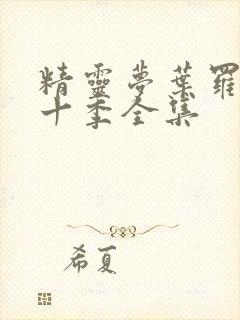 精靈夢葉羅
十季全集
希夏